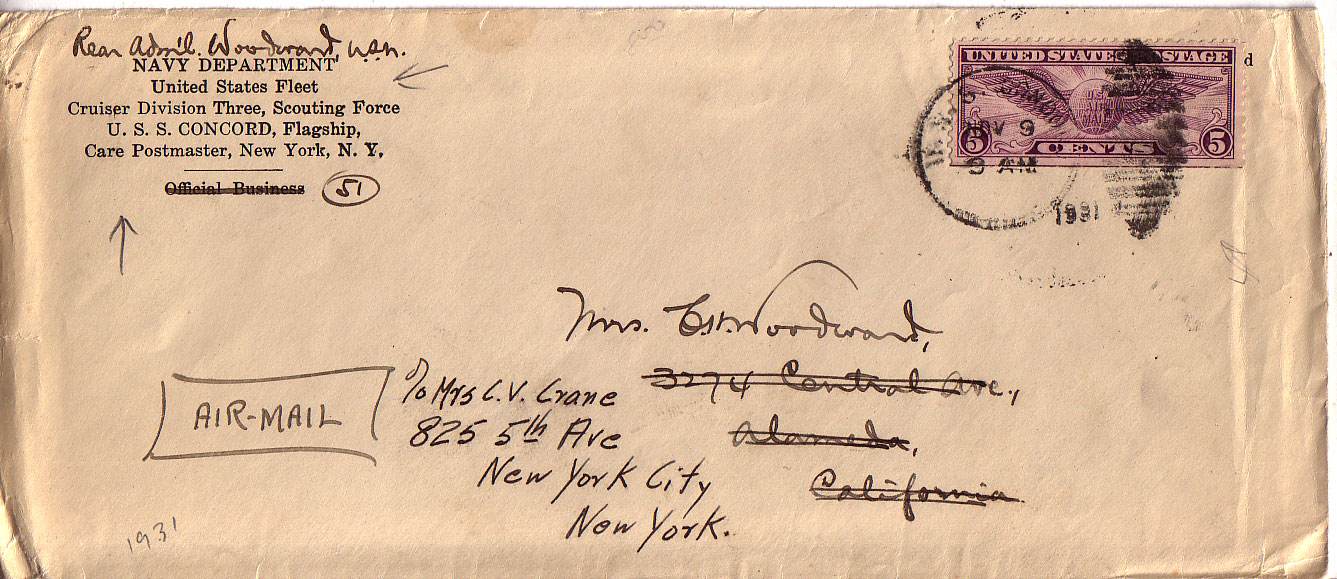 Rear Adm'l. Woodward, U.S.N.
NAVY DEPARTMENT
United States Fleet
Cruiser Division Three, Scouting Force
U. S. S. CONCORD, Flagship,
Care Postmaster, New York, N. Y.
Official Business
51
UNITED STATES POSTAGE
d
NOV 9
9 AM
1931
5 CENTS 5
Mrs. Woodward,
3274 Central Ave.,
Alameda,
California
AIR-MAIL
c/o Mrs C.V. Crane
825 5th Ave
New York City
New York.
1931